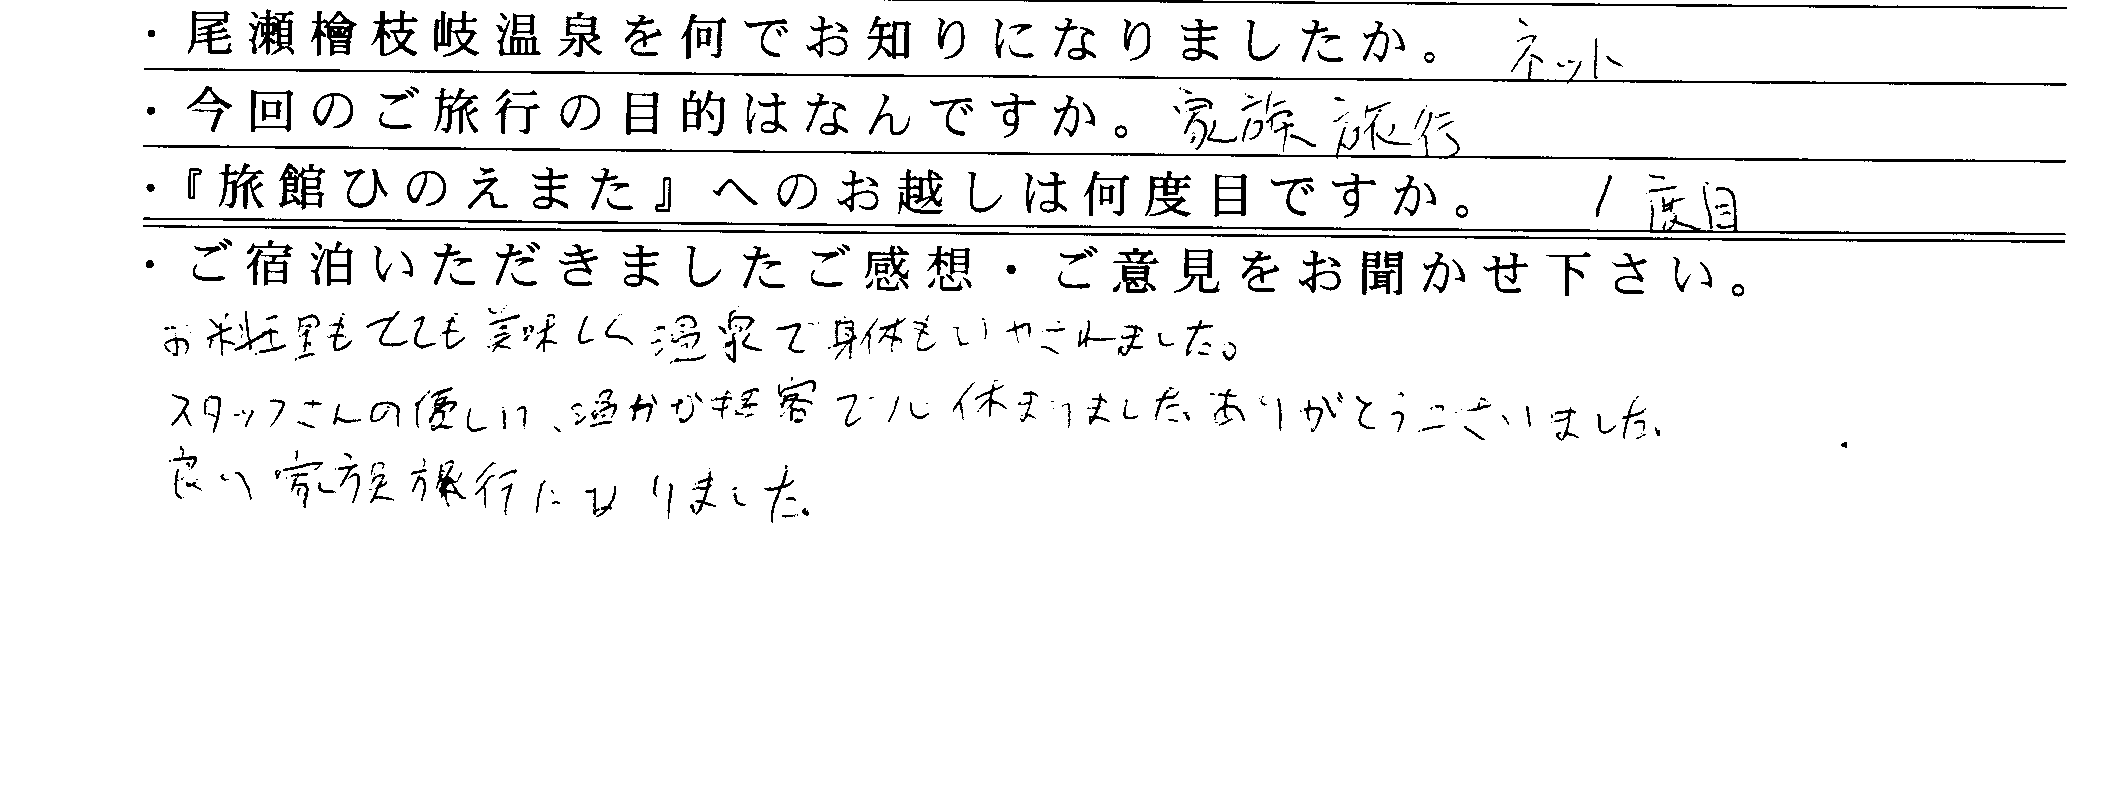 ・尾瀬檜枝岐温泉を何でお知りになりましたか。 ネット
・今回のご旅行の目的はなんですか。家族旅行
・『旅館ひのえまた』へのお越しは何度目ですか。 1度目
・ご宿泊いただきましたご感想・ご意見をお聞かせ下さい。
お料理もとても美味しく温泉で身体もいやされました。
スタッフさんの優しい、温かな接客で心休まりました。ありがとうございました。
良い家族旅行になりました。